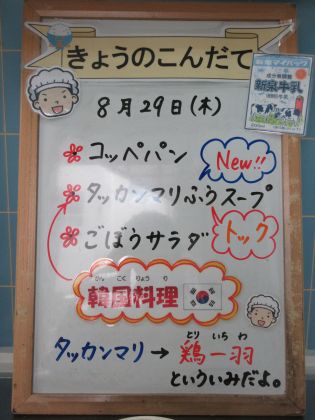 きょうのこんだて
8月29日(木)
コッペパン
New!!
タッカンマリふうスープ
トック
ごぼうサラダ
かんこくりょうり
韓国料理
とり いちわ
タッカンマリ→鶏一羽
といういみだよ。
新泉牛乳